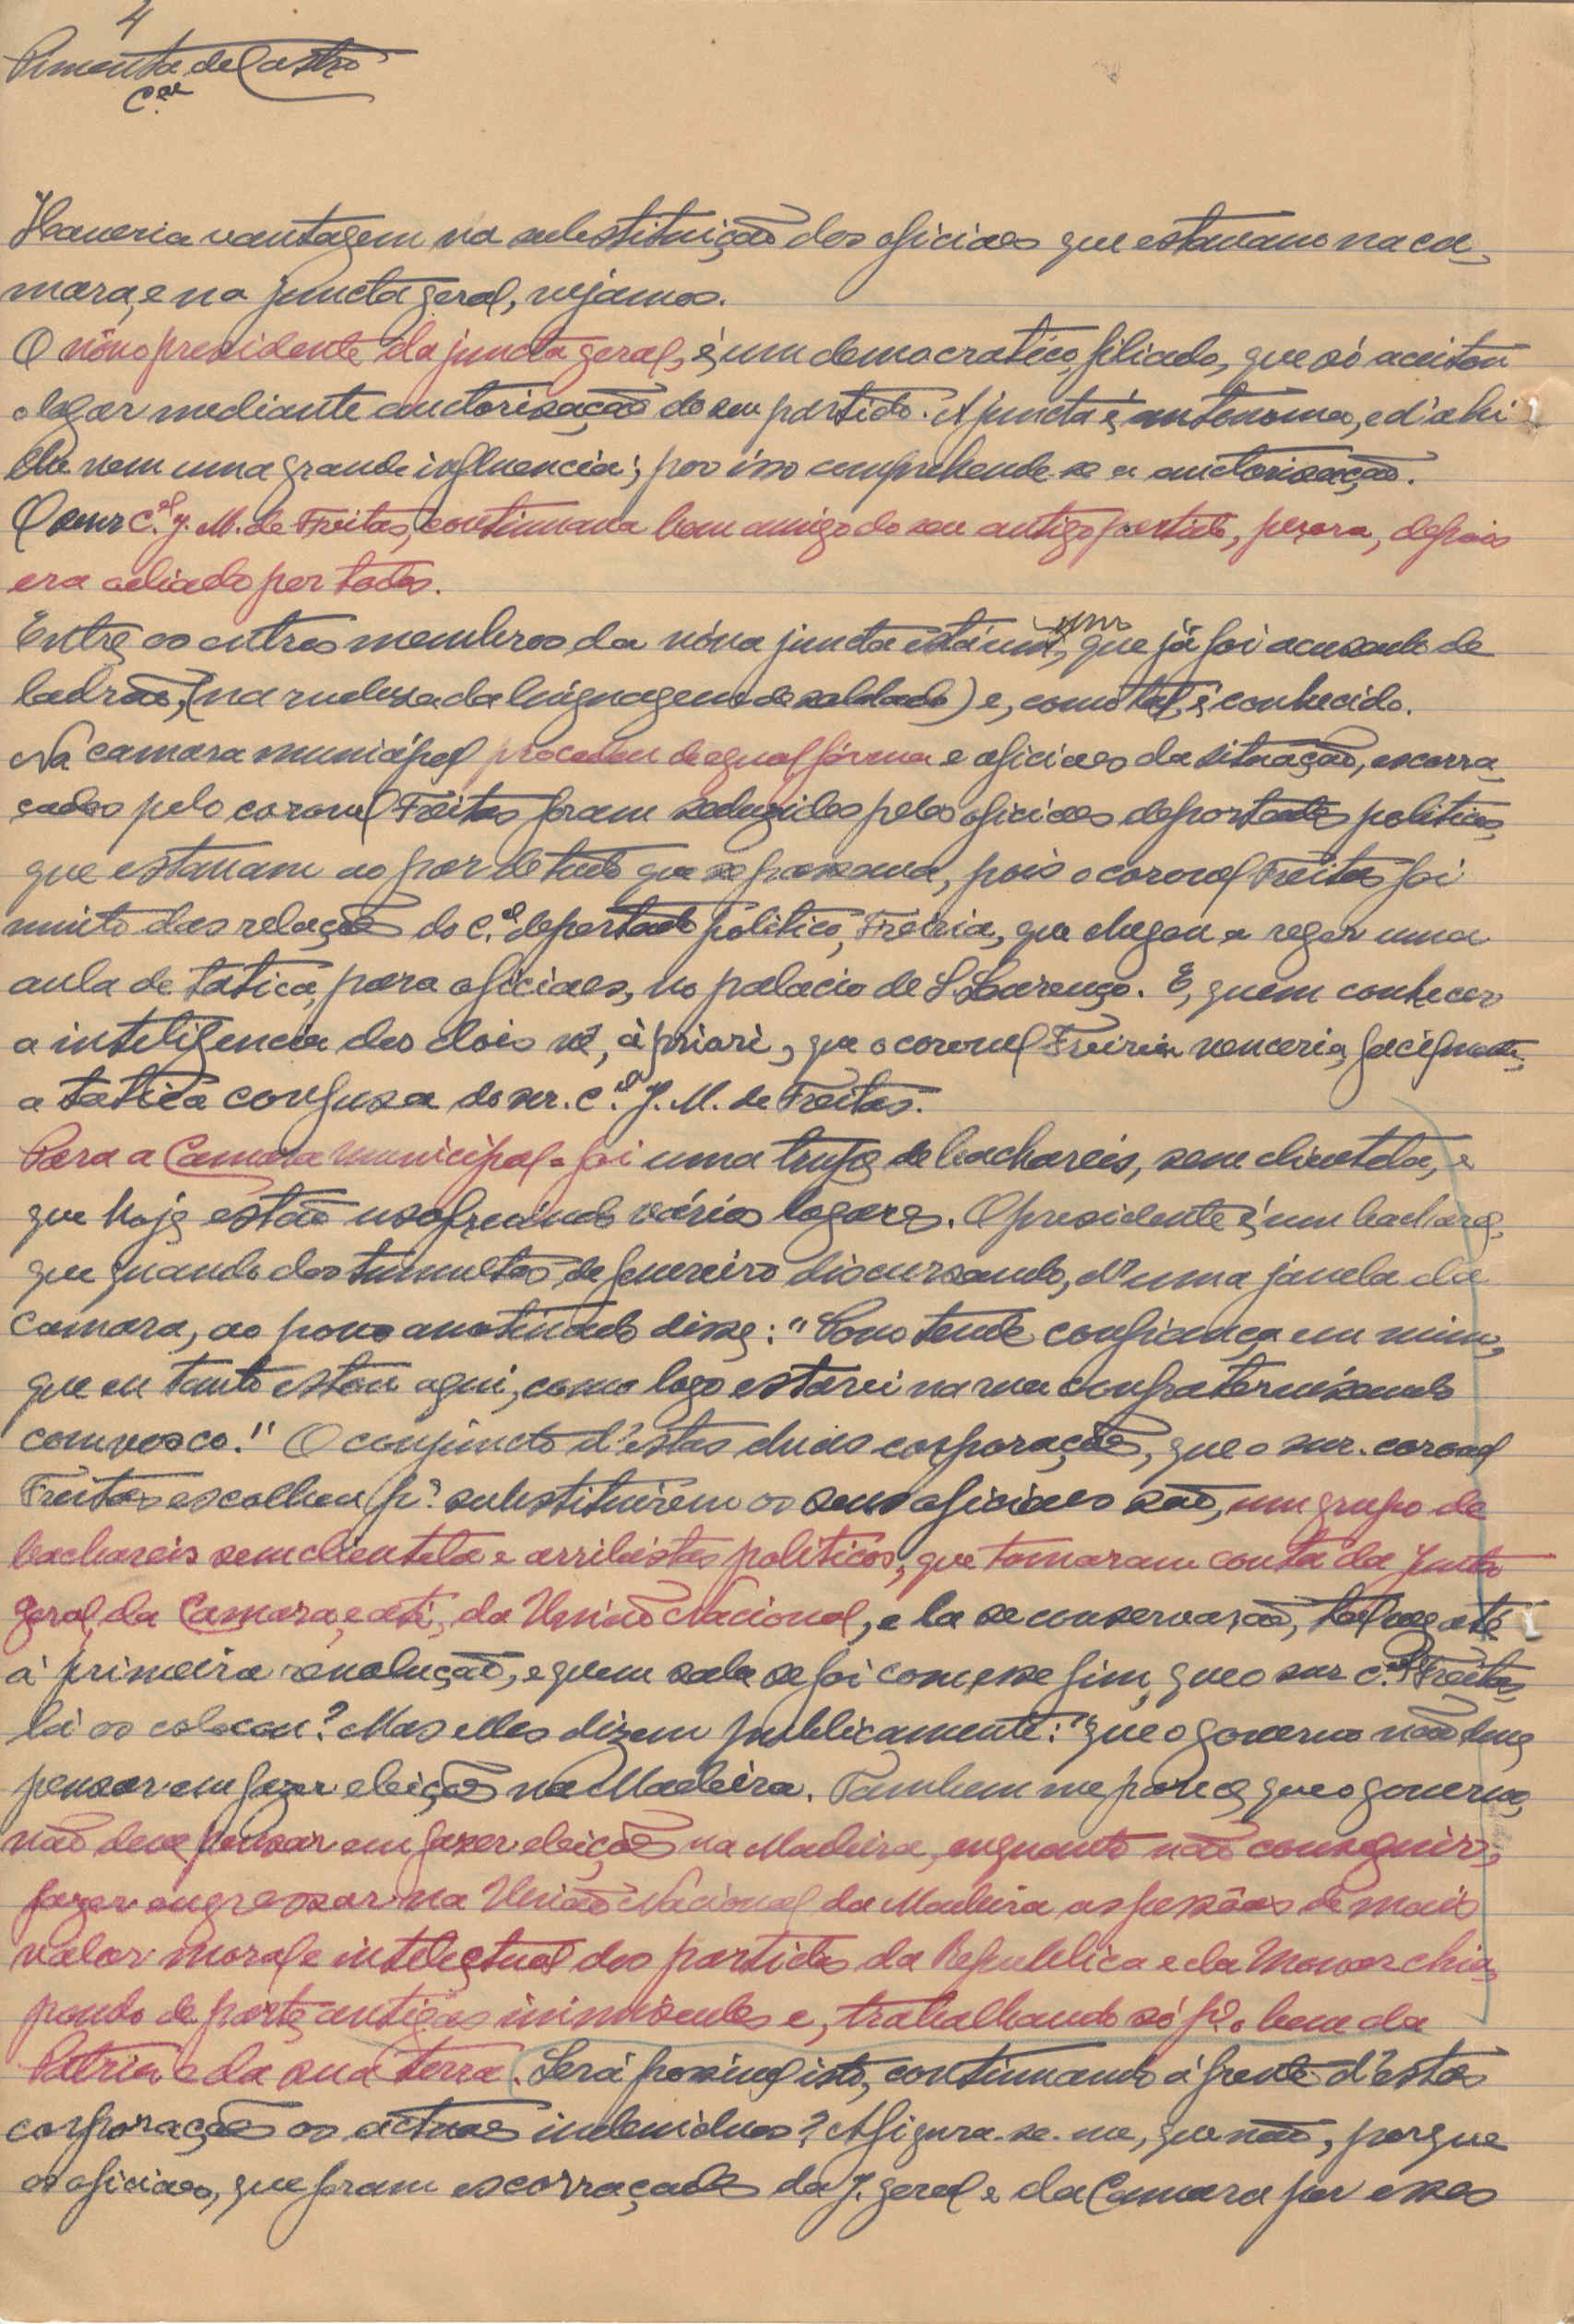 4
Pimenta de Castro
C.el
Haveria vantagem na substituição dos oficiaes que estavam na ca-
mara, e na juncta geral, vejamos.
O nôvo presidente da juncta geral, é um democratico, filiado, que só aceitou
o logar mediante auctorisação do seu partido. A juncta é autonoma, e d'ahi
lhe vem uma grande influencia; por isso comprehende-se a auctorisação.
O snr C.el J. M. de Freitas, continuava bem amigo do seu antigo partido, depois
era odiado por todos.
Entre os outros membros da nóva juncta está um, que já foi acusado de
ladrão, (na rudeza da linguagem de soldado) e, como tal, é conhecido.
Na camara municipal procedeu de egual fórma e oficiaes da situação, escorra-
çados pelo coronel Freitas foram seduzidos pelos oficiaes deportados politicos,
que estavam ao par de tudo que se passava, pois o coronel Freitas foi
muito das relações do C.el deportado politico, Freiria, que chegou a reger uma
aula de tatica, para oficiaes, no palacio de S. Lourenço. E, quem conhecer
a inteligencia dos dois vê, à priori, que o coronel Freiria venceria, facilmente,
a tatica confusa do snr. C.el J. M. de Freitas.
Para a Camara municipal foi uma trupe de bachareis, sem clientela, e
que hoje estão usofruindo vários logares. O presidente é um bacharel,
que quando dos tumultos de fevereiro discursando, d'uma janela da
Camara, ao povo amotinado disse: "Povo tende confiança em mim,
que eu tanto estou aqui, como logo estarei na rua confraternisando
comvosco." O conjuncto d'estas duas corporações, que o snr. coronel
Freitas escolheu p.ª substituirem os seus oficiaes são, um grupo de
bachareis sem clientela e arribistas politicos, que tomaram conta da Junta
geral, da Camara, e até, da União Nacional, e la se conservarão, talvez até
á primeira revolução, e quem sabe se foi com esse fim, que o snr C.el Freitas
lá os colocou? Mas elles dizem publicamente: "que o governo não deve
pensar em fazer eleições na Madeira. Tambem me parece, que o governo,
não deve pensar em fazer eleições na Madeira, enquanto não conseguir,
fazer ingressar na União Nacional da Madeira as pessôas de mais
valor moral e intelectual dos partidos da Republica e da Monarchia,
pondo de parte antigas inimisades e, trabalhando só p.ª o bem da
Patria e da sua terra. Será possivel isto, continuando á frente d'estas
corporações os actuaes individuos? Afigura-se-me, que não, porque
os oficiaes, que foram escorraçados da J. geral e da Camara por esses